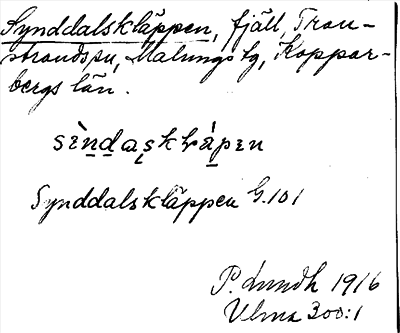 Synddalskläppen, fjäll, Tran-
strands sn, Malungs tg, Koppar-
bergs län.
sìndaskḷápɪn
Synddalskläppen G.101
P. Lundh 1916
Ulma 300:1